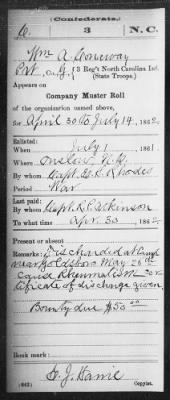 (Confederate.)
C. 3 N.C.
Wm A Coneway
Pvt, Co. 3 Reg't North Carolina Inf.
(State Troops.)
Appears on
Company Muster Roll
of the organization named above,
for April 30 to July 14, 1862.
Enlisted:
When July 1, 1861.
Where Onslow N.C.
By whom Capt. Rhodes
Period War
Last paid:
By whom Capt. R.P. Atkinson
To what time Apr. 30, 1862.
Present or absent
Remarks: Discharged at Camp
near Goldsboro May 28th
Cause Rheumatism Cer-
tificate of discharge given
Bounty due $50.00
Book mark:
(642)
Copyist.